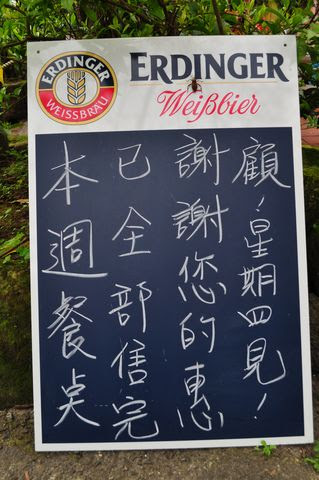 ERDINGER
WEISSBRÄU
ERDINGER
Weißbier
本週餐点
已全部售完
謝謝您的惠
顧!星期四見!